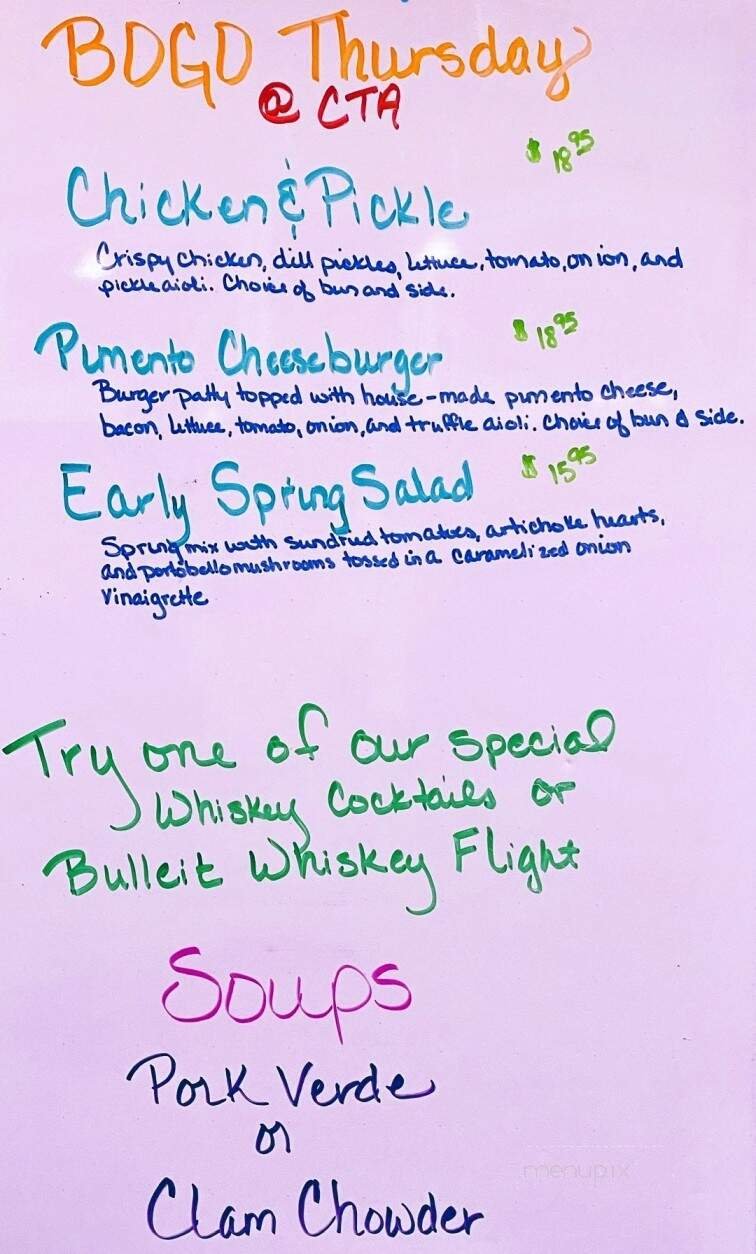 BOGO Thursday
@ CTA
$18.95
Chicken & Pickle
Crispy chicken, dill pickles, lettuce, tomato, onion, and
pickle aioli. Choice of bun and side.
$18.95
Pimento Cheeseburger
Burger patty topped with house-made pimento cheese,
bacon, lettuce, tomato, onion, and truffle aioli. Choice of bun & side.
$15.95
Early Spring Salad
Spring mix with sundried tomatoes, artichoke hearts,
and portobello mushrooms tossed in a caramelized onion
Vinaigrette
Try one of our special
Whiskey Cocktails or
Bulleit Whiskey Flight
Soups
Pork Verde
or
Clam Chowder
menupix